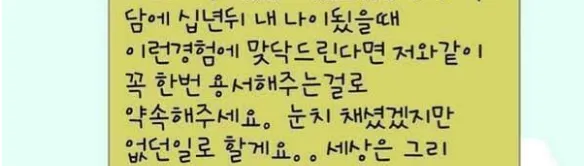 담에 십년뒤 내 나이됬을때
이런경험에 맞닥드린다면 저와같이
꼭 한번 용서해주는걸로
약속해주세요。 눈치 채셨겠지만
없던일로 할게요。。세상은 그리